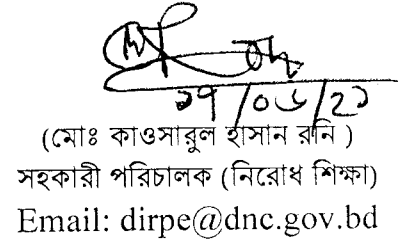 ১৭/০৬/২১
(মোঃ কাওসারুল হাসান রনি )
সহকারী পরিচালক (নিরোধ শিক্ষা)
Email: dirpe@dnc.gov.bd